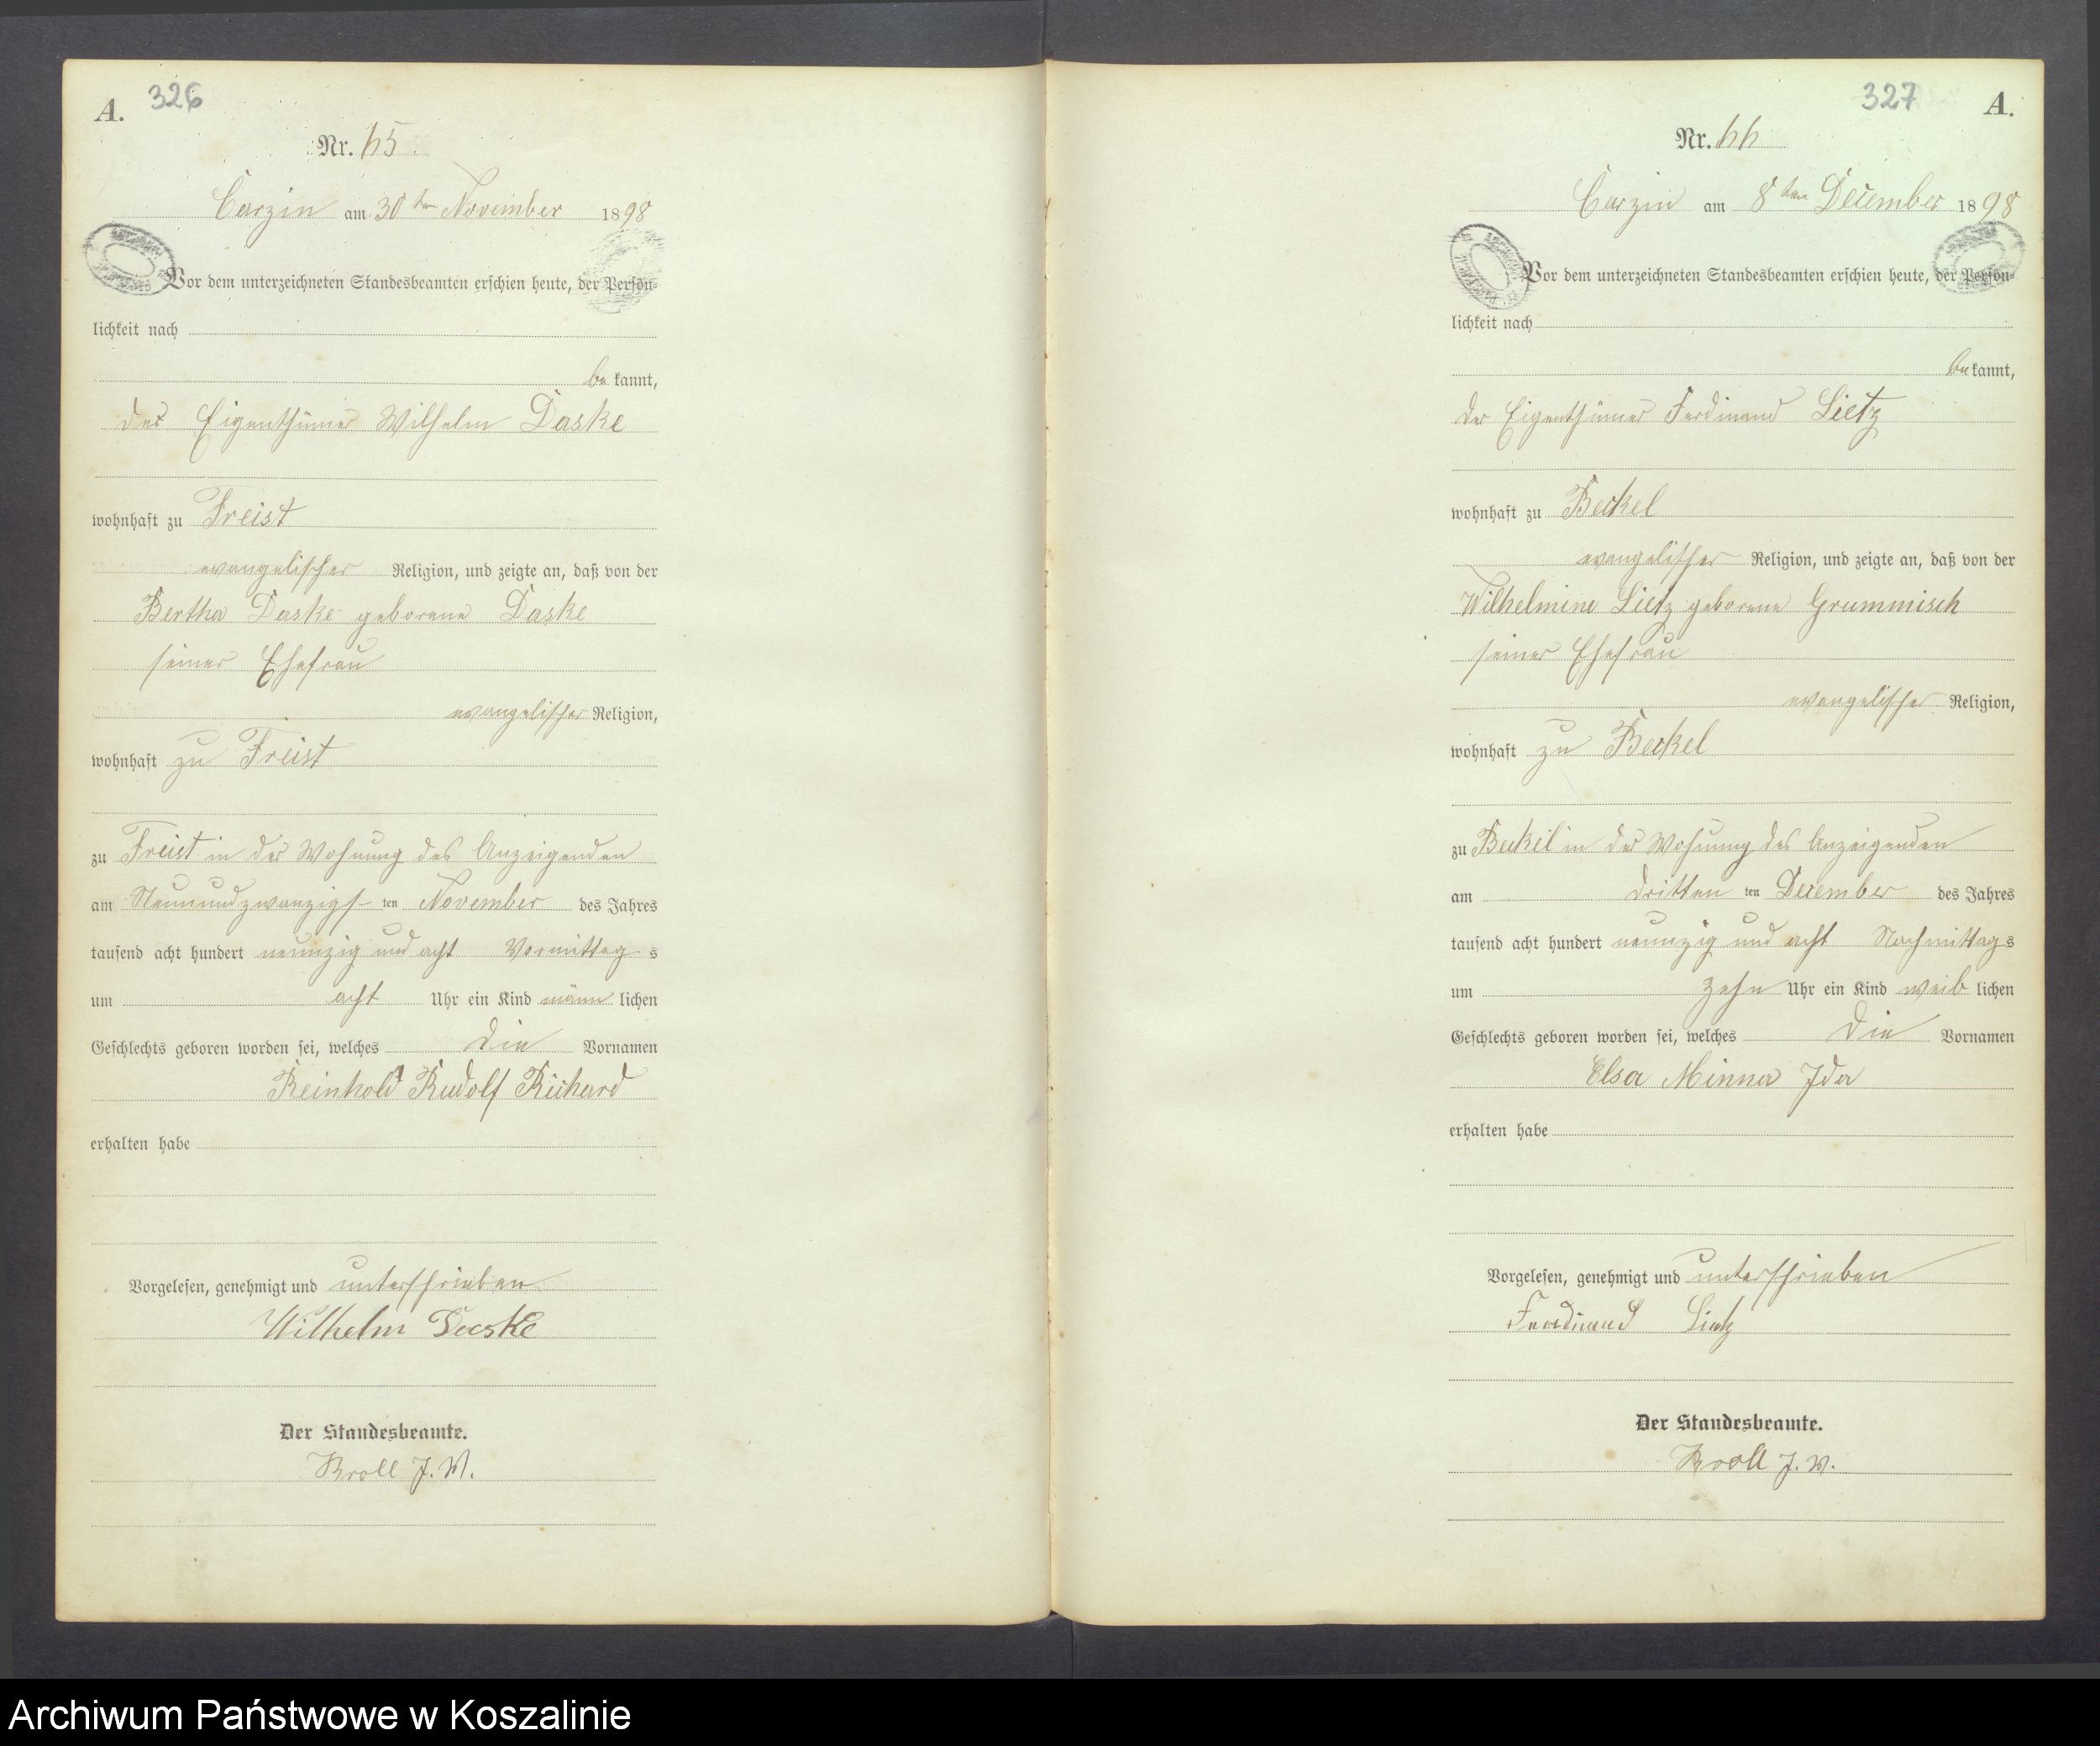 A. 326
Nr. 65
Carzin am 30ten November 1898
Vor dem unterzeichneten Standesbeamten erschien heute, der Persön-
lichkeit nach
be kannt,
der Eigenthümer Wilhelm Daske
wohnhaft zu Freist
evangelischer Religion, und zeigte an, daß von der
Bertha Daske geborene Daske
seiner Ehefrau
evangelischer Religion,
wohnhaft zu Freist
zu Freist in der Wohnung des Anzeigenden
am Neunundzwanzigs ten November des Jahres
tausend acht hundert neunzig und acht Vormittag s
um acht Uhr ein Kind männ lichen
Geschlechts geboren worden sei, welches die Vornamen
Reinhold Rudolf Richard
erhalten habe
Vorgelesen, genehmigt und unterschrieben
Wilhelm Daske
Der Standesbeamte.
Kroll J. V.
327 A.
Nr. 66
Carzin am 8ten December 1898
Vor dem unterzeichneten Standesbeamten erschien heute, der Persön-
lichkeit nach
be kannt,
der Eigenthümer Ferdinand Lietz
wohnhaft zu Beckel
evangelischer Religion, und zeigte an, daß von der
Wilhelmine Lietz geborene Grummisch
seiner Ehefrau
evangelischer Religion,
wohnhaft zu Beckel
zu Beckel in der Wohnung des Anzeigenden
am dritten ten December des Jahres
tausend acht hundert neunzig und acht Nachmittag s
um zehn Uhr ein Kind weib lichen
Geschlechts geboren worden sei, welches die Vornamen
Elsa Minna Ida
erhalten habe
Vorgelesen, genehmigt und unterschrieben
Ferdinand Lietz
Der Standesbeamte.
Kroll J. V.
Archiwum Państwowe w Koszalinie